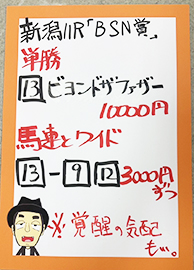 新潟11R「BSN賞」
単勝
13 ビヨンドザファザー
10000円
馬連とワイド
13-9 12 3000円
ずつ
※覚醒の気配
もぃ。